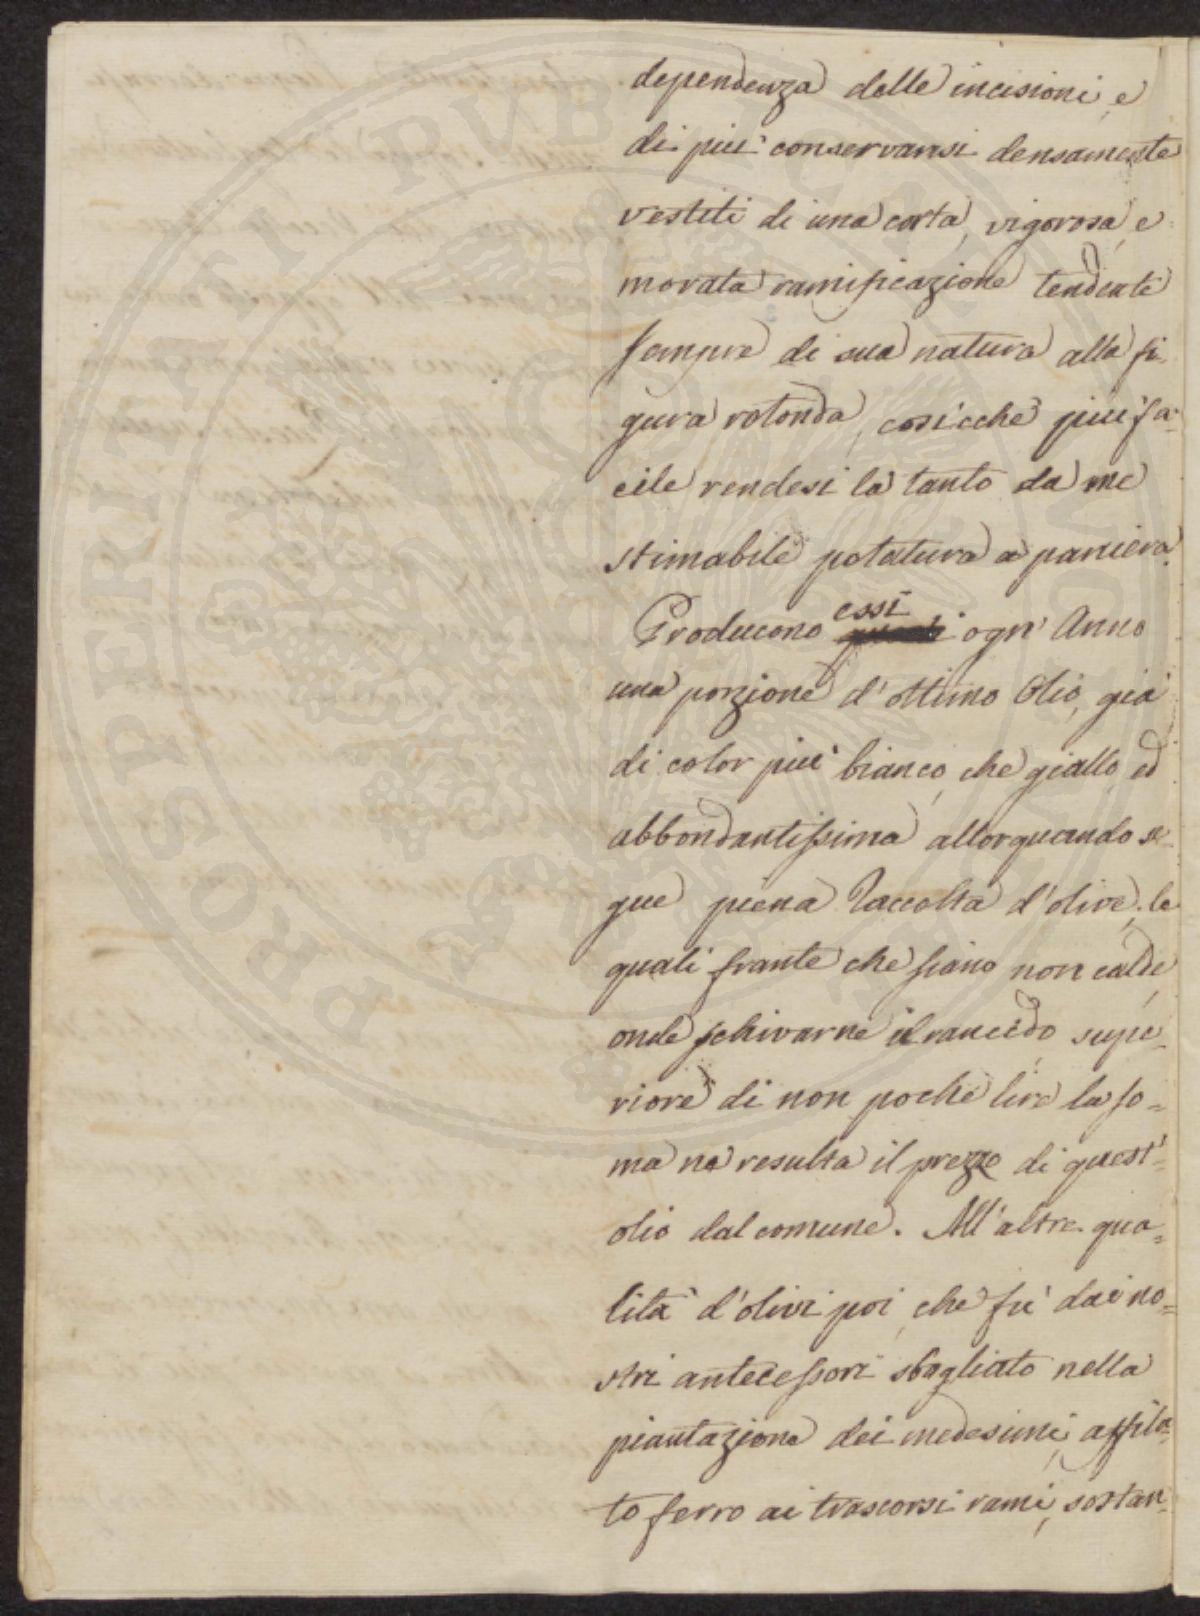 dependenza delle incisioni, e
di più conservansi densamente
vestiti di una corta, vigorosa, e
morata ramificazione tendente
sempre di sua natura alla fi-
gura rotonda, cosicchè più fa-
cile rendesi la tanto da me
stimabile potatura a paniera.
Producono essi ogn' Anno
una porzione d'ottimo Olio, già
di color più bianco, che giallo, ed
abbondantissima allorquando se-
gue piena Raccolta d'olive, le
quali frante che siano non calde,
onde schivarne il rancido, supe-
riore di non poche lire la so-
ma ne resulta il prezzo di quest'
olio dal comune. All'altre qua-
lità d'olivi poi, che fù dai no-
stri antecessori sbagliato nella
piantazione dei medesimi, affila-
to ferro ai trascorsi rami, sostan-
PROSPERITATI PVBLICAE